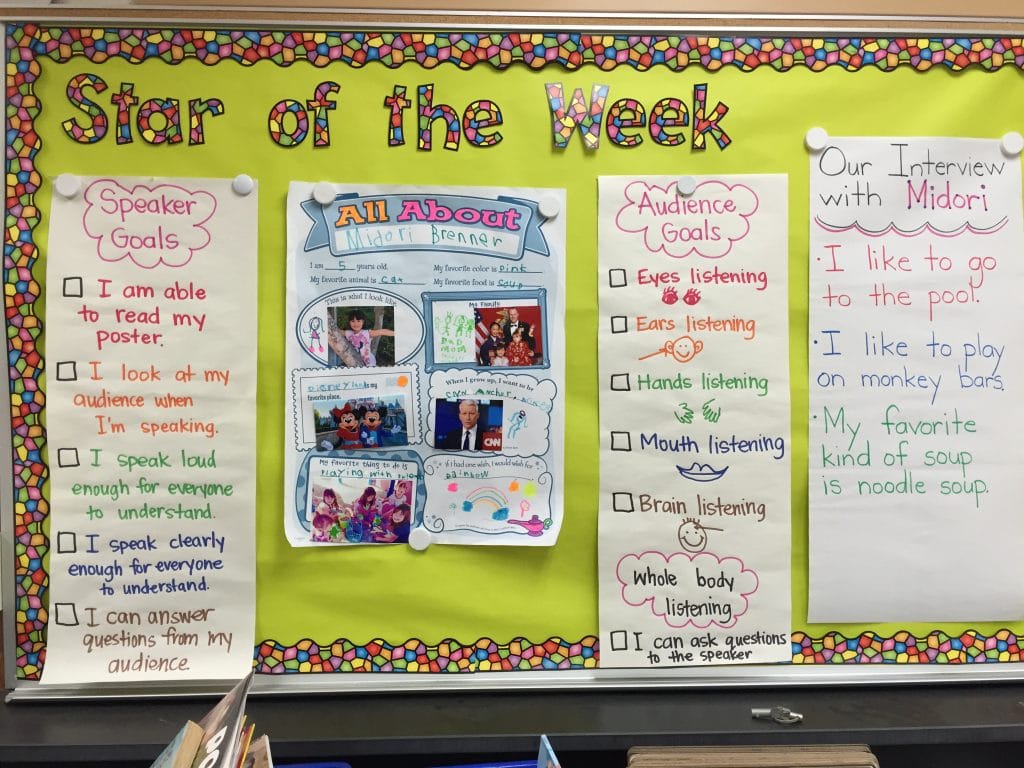 Star of the Week
Speaker
Goals
I am able
to read my
poster.
I look at my
audience when
I'm speaking.
I speak loud
enough for everyone
to understand.
I speak clearly
enough for everyone
to understand.
I can answer
questions from my
audience.
All About
Midori Brenner
I am 5 years old.
My favorite color is pink
My favorite animal is cat
My favorite food is soup
This is what I look like
My Family
DAD
MOM
Disneyland is my
favorite place.
When I grow up, I want to be
CNN
My favorite thing to do is
playing with
If I had one wish, I would wish for
rainbow
Audience
Goals
Eyes listening
Ears listening
Hands listening
Mouth listening
Brain listening
Whole body
listening
I can ask questions
to the speaker
Our Interview
with Midori
· I like to go
to the pool.
· I like to play
on monkey bars.
· My favorite
kind of soup
is noodle soup.